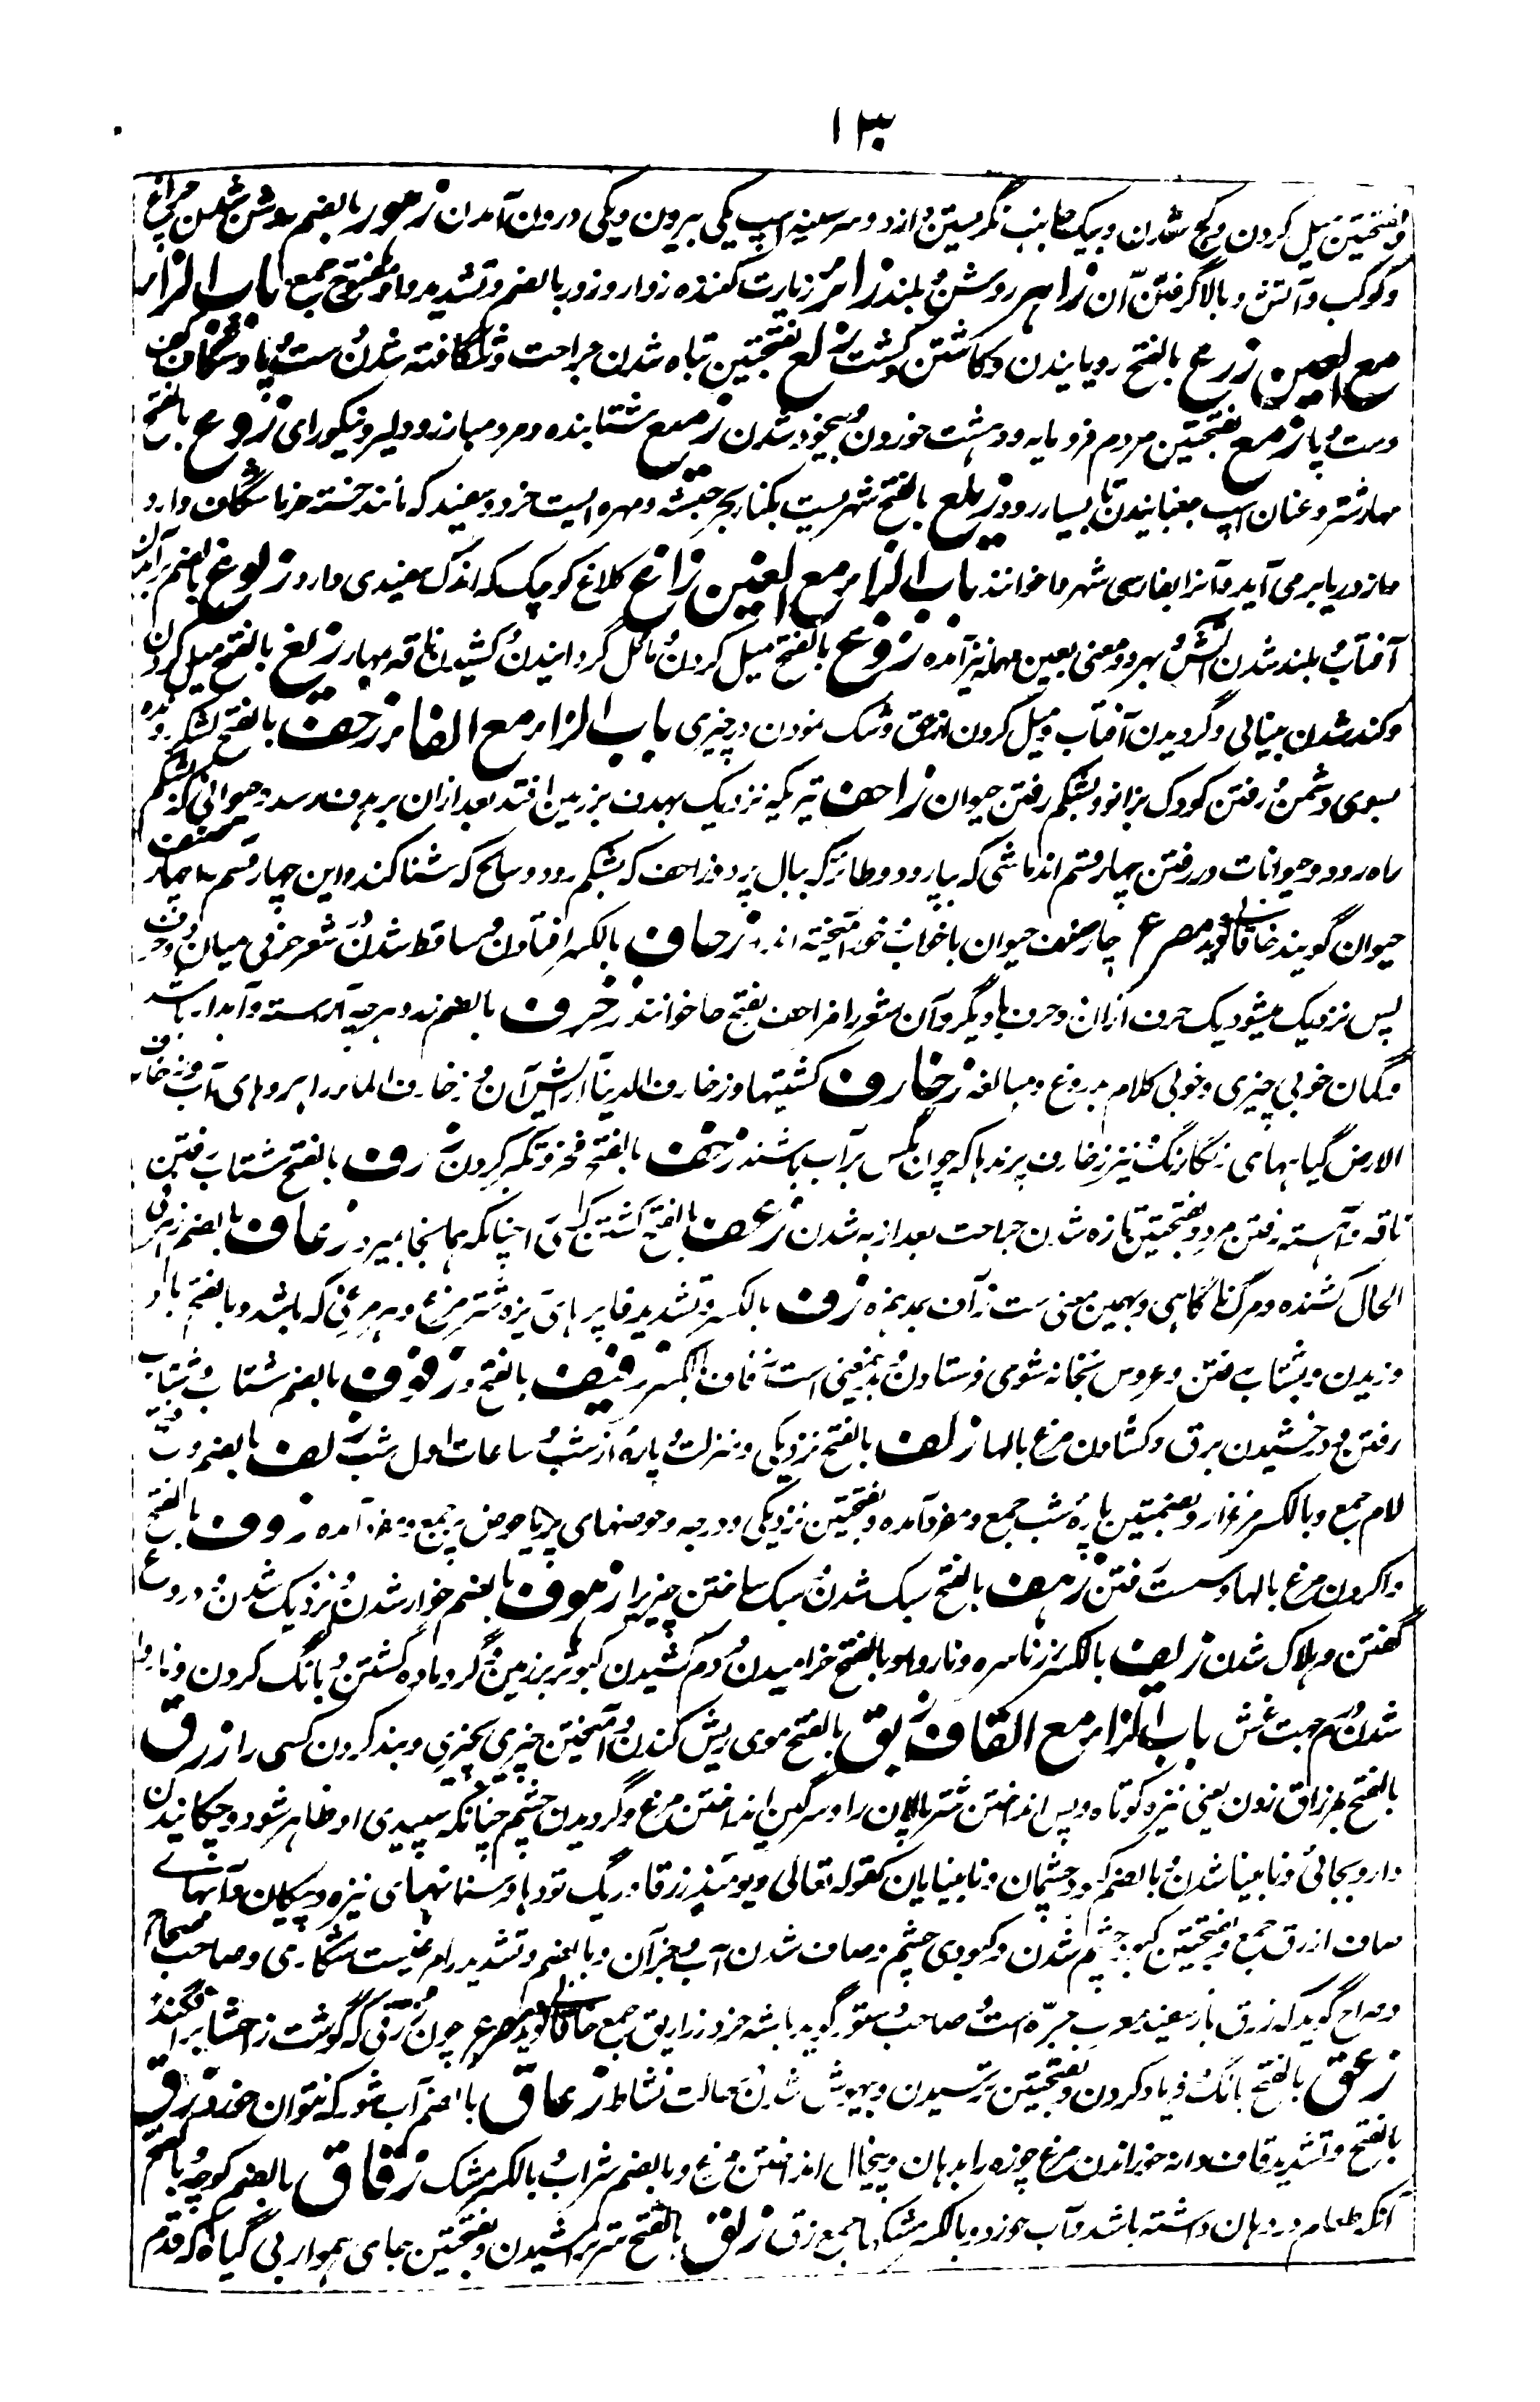 ۱۳۰
و بفتحتین میل کردن و کج شدن و بیک جانب نگریستن و از دو سر سینه اسپ یکی بیرون و یکی درون آمدن زهور بالضم روشن شدن چراغ
و کوکب و آتش و بالا گرفتن آن زاهر روشن و بلند زائر زیارت کننده زوار و زور بالضم و تشدید واو مفتوح جمع باب الزاء
مع العین زرع بالفتح رویانیدن و کاشتن و کشت زلع بفتحتین تباه شدن جراحت و شگافته شدن دست و پا و شگاف کف
دست و پا زمع بفتحتین مردم فرومایه و دهشت خوردن و بیخود شدن زمیع شتابنده و مرد مبارز و دلیر و نیکو رای زوع بالفتح
مهار شتر و عنان اسپ جنبانیدن تا بسیار رود زیلع بالفتح شهریست بکنار بحر حبشه و مهره ایست خرد و سفید که مانند خسته خرما شگاف دارد
و از دریا برمی آید و آنرا بفارسی شهر ما خوانند باب الزاء مع الغین زاغ کلاغ کوچک که اندک سفیدی دارد زلوغ بالضم برآمدن
آفتاب و بلند شدن آتش و بهر دو معنی بعین مهمله نیز آمده زوغ بالفتح میل کردن و مائل گردانیدن و کشیدن ناقه مهار زیغ بالفتح میل کردن
و کند شدن بینائی و گردیدن آفتاب و میل کردن از حق و شک نمودن در چیزی باب الزاء مع الفاء زحف بالفتح لشکر رونده
بسوی دشمن و رفتن کودک بزانو و بشکم رفتن حیوان زاحف تیریکه نزدیک بهدف بزمین افتد بعد ازان بر هدف رسد و حیوانی که بشکم
راه رود و حیوانات در رفتن بچهار قسم اند ماشی که بپا رود و طائر که ببال پرد و زاحف که بشکم رود و سابح که شنا کند و این چهار قسم را چهار صنف
حیوان گویند خاقانی گوید مصرع چار صنف حیوان با خواب خور آمیخته اند زحاف بالکسر افتادن و ساقط شدن در شعر حرفی میان دو حرف
پس نزدیک میشود یک حرف ازان دو حرف با دیگر و آن شعر را مزاحف بفتح حا خوانند زخرف بالضم زر و هر چه آراسته و آبدار باشد
و کمان خوبی چیزی و خوبی کلام بدروغ و مبالغه زخارف کشتیها و زخارف الدنیا آرایش آن و زخارف الماء راههای آب و زخارف
الارض گیاههای رنگارنگ و نیز زخارف پرندها که چون مگس بر آب باشند زخف بالفتح فخر و تکبر کردن زرف بالفتح شتاب رفتن
ناقه و آهسته رفتن مرد و بفتحتین تازه شدن جراحت بعد از به شدن زعف بالفتح کشتن کسی را چنانکه همانجا بمیرد زعاف بالضم زهر فی
الحال کشنده و مرگ ناگاهی و بهمین معنی ست زآف بمد همزه زف بالکسر و تشدید فا پرهای ریزه شتر مرغ و هر مرغی که باشد و بالفتح باد
وزیدن و بشتاب رفتن و عروس بخانه شوی فرستادن و بدینمعنی است زفاف بالکسر زفیف بالفتح و زفوف بالضم شتاب و بشتاب
رفتن و درخشیدن برق و کشادن مرغ بالها زلف بالفتح نزدیکی و منزلت و پارهٔ از شب و ساعات اول شب زلف بالضم و فتح
لام جمع و بالکسر مرغزار و بضمتین پارهٔ شب جمع و مفرد آمده و بفتحتین نزدیکی و درجه و حوضهای پر یا حوض پر جمع و مفرد آمده زوف بالفتح
وا کردن مرغ بالها و سست رفتن زهف بالفتح سبک شدن و سبک ساختن چیزیرا زهوف بالضم خوار شدن و نزدیک شدن و دروغ
گفتن و هلاک شدن زیف بالکسر زر ناسره و ناروا و بالفتح خرامیدن و دم کشیدن کبوتر بر زمین و گرد ماده گشتن و بانگ کردن و ناروا
شدن درم بجهت غش باب الزاء مع القاف زبق بالفتح موی ریش کندن و آمیختن چیزی بچیزی و بند کردن کسی را زرق
بالفتح مزراق زدن یعنی نیزه کوتاه و پس انداختن شتر پالان را و سرگین انداختن مرغ و گردیدن چشم چنانکه سپیدی او ظاهر شود و چکانیدن
دارو بجائی و نابینا شدن و بالضم کبود چشمان و نابینایان کقوله تعالی و یومئذ زرقا و ریگ تودها و سنانهای نیزه و پیکان و آبهای
صاف ازرق جمع و بفتحتین کبود چشم شدن و کبودی چشم و صاف شدن آب و جز آن و بالضم و تشدید راء مرغیست شکاری و صاحب صحاح
و صراح گوید که زرق باز سفید معرب جره است و صاحب دستور گوید باشه خرد زراریق جمع خاقانی گوید مصرع چون زرقی که گوشت ز احشا برافگند
زعق بالفتح بانگ و فریاد کردن و بفتحتین ترسیدن و بیهوش شدن و حالت نشاط زعاق بالضم آب شور که نتوان خورد زق
بالفتح و تشدید قاف دانه خورانیدن مرغ چوزه را بدهان و پیخال انداختن مرغ و بالضم شراب و بالکسر مشک زقاق بالضم کوچه و بالفتح
آنکه طعام در دهان داشته باشد و آب خورد و بالکسر مشکها جمع زق زلق بالفتح ستر تراشیدن و بفتحتین جای هموار بی گیاه که قدم